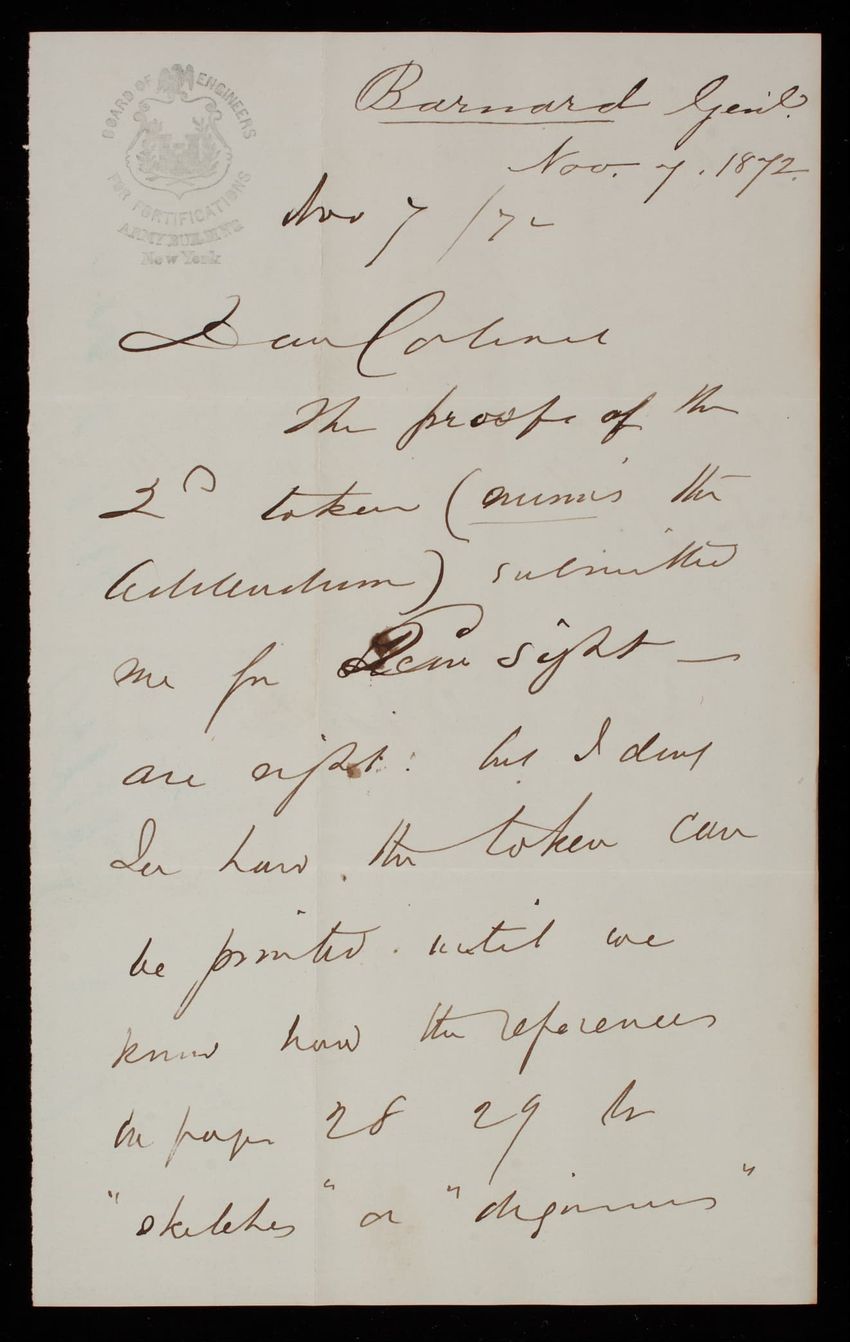 BOARD OF ENGINEERS
FOR FORTIFICATIONS
ARMY BUILDING
New York
Barnard Genl.
Nov. 7. 1872.
Nov 7 /72
Dear Colonel
The proofs of the
2D token (minus the
Addendum) submitted
me for sight —
are right: but I dont
See how the token can
be printed until we
know how the references
on pages 28 29 to
"sketches" or "diagrams"